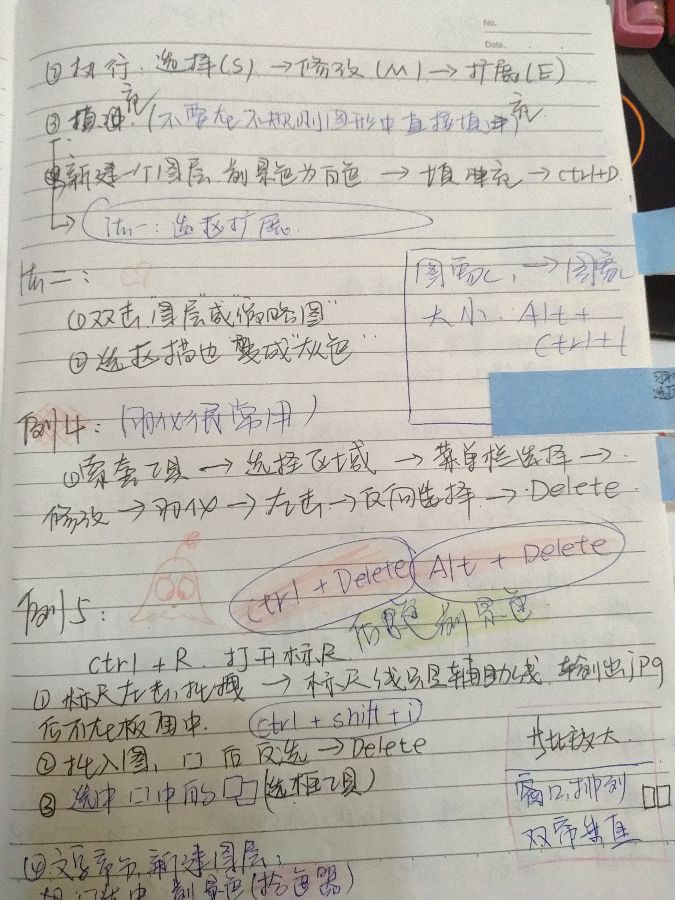 No.
Date.
② 执行. 选择(S) → 修改(M) → 扩展(E)
③ 填充. (不要在不规则图形中直接填充
新建一个图层, 前景色为白色 → 填充 → ctrl+D.
法一: 选区扩展。
法二:
① 双击"图层"或"缩略图"
② 选区描边 变成"灰色"
图像 → 图像
大小. Alt +
Ctrl + I
例4: (羽化很常用)
① 索套工具 → 选择区域 → 菜单栏选择 →
修改 → 羽化 → 左击 → 反向选择 → Delete
ctrl + Delete Alt + Delete
背景 前景色
例5:
ctrl + R. 打开标尺
① 标尺左击, 拖拽 → 标尺线只是辅助线, 输出jpg
后不在板面中.
ctrl + shift + i
② 拖入图, 口 后反选 → Delete
③ 选中 口中的口口 (选框工具)
放大.
窗口, 排列
双
④ 文字 新建图层;
选中 前景色(拾色器)